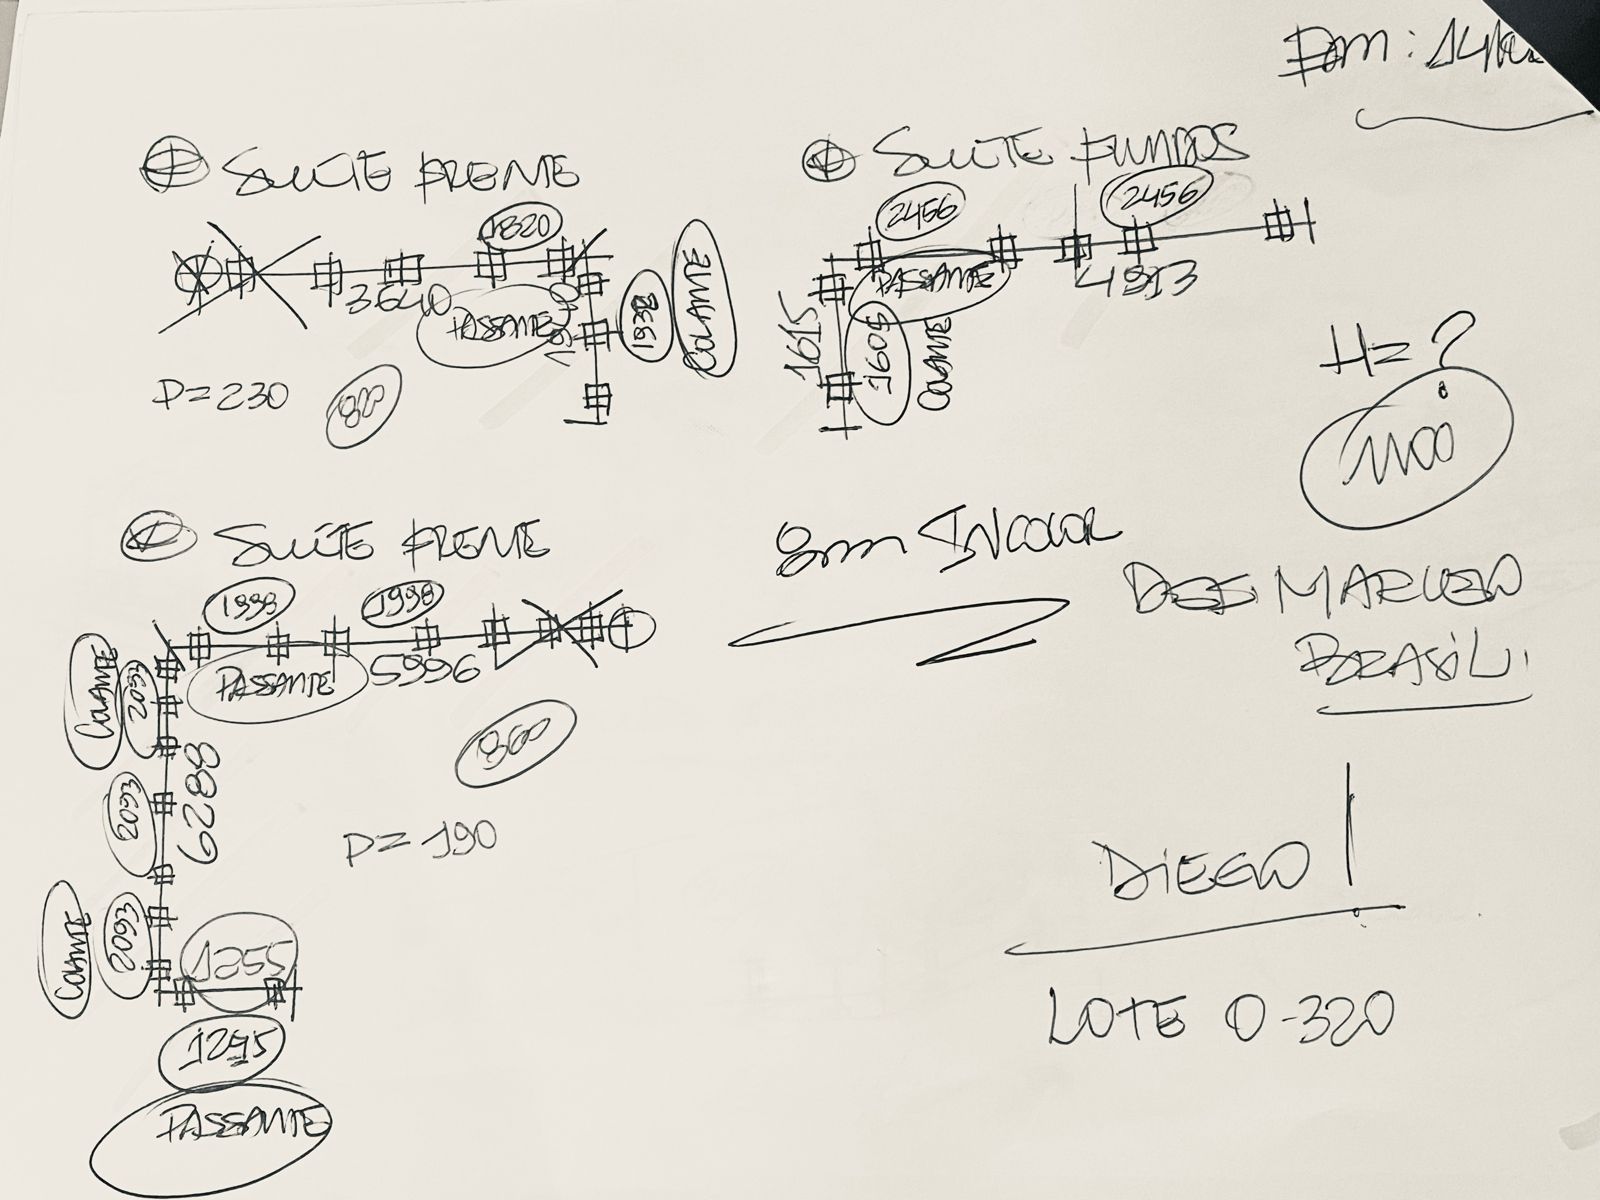 SUÍTE FRENTE
1820
3640
PASSANTE
1932
COLANTE
P=230
SUÍTE FUNDOS
2456
2456
PASSANTE
4913
1615
1605
COLANTE
H=?
1100
SUÍTE FRENTE
1998
PASSANTE
5996
COLANTE
2093
2093
6288
COLANTE
2093
P=190
1255
1295
PASSANTE
8mm INCOLOR
BRASIL
DIEGO!
LOTE O-320